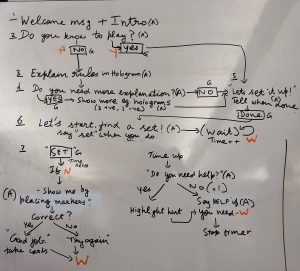 1- Welcome msg + Intro (A)
2. Do you know to play? (A)
NO G
N
Y
YES G
3. Explain rules in Hologram (A)
4. Do you need more explanation? (A) → NO
G
G
YES → Show more eg holograms
(3 +ve, 1 -ve)
5
Let's set it up!
Tell when done
Done G
6 Let's start, find a set! (A) → (Wait)
say "set" when you do
Time++
W
7 "SET" G
Time stop
If N
(A) "Show me by
placing markers"
Correct?
Yes
No
"Good job"
take cards
"Try again"
W
Time up
"Do you need help?" (A)
yes
No (.1)
Highlight hint
Say HELP if (A)
you need - W
Stop timer